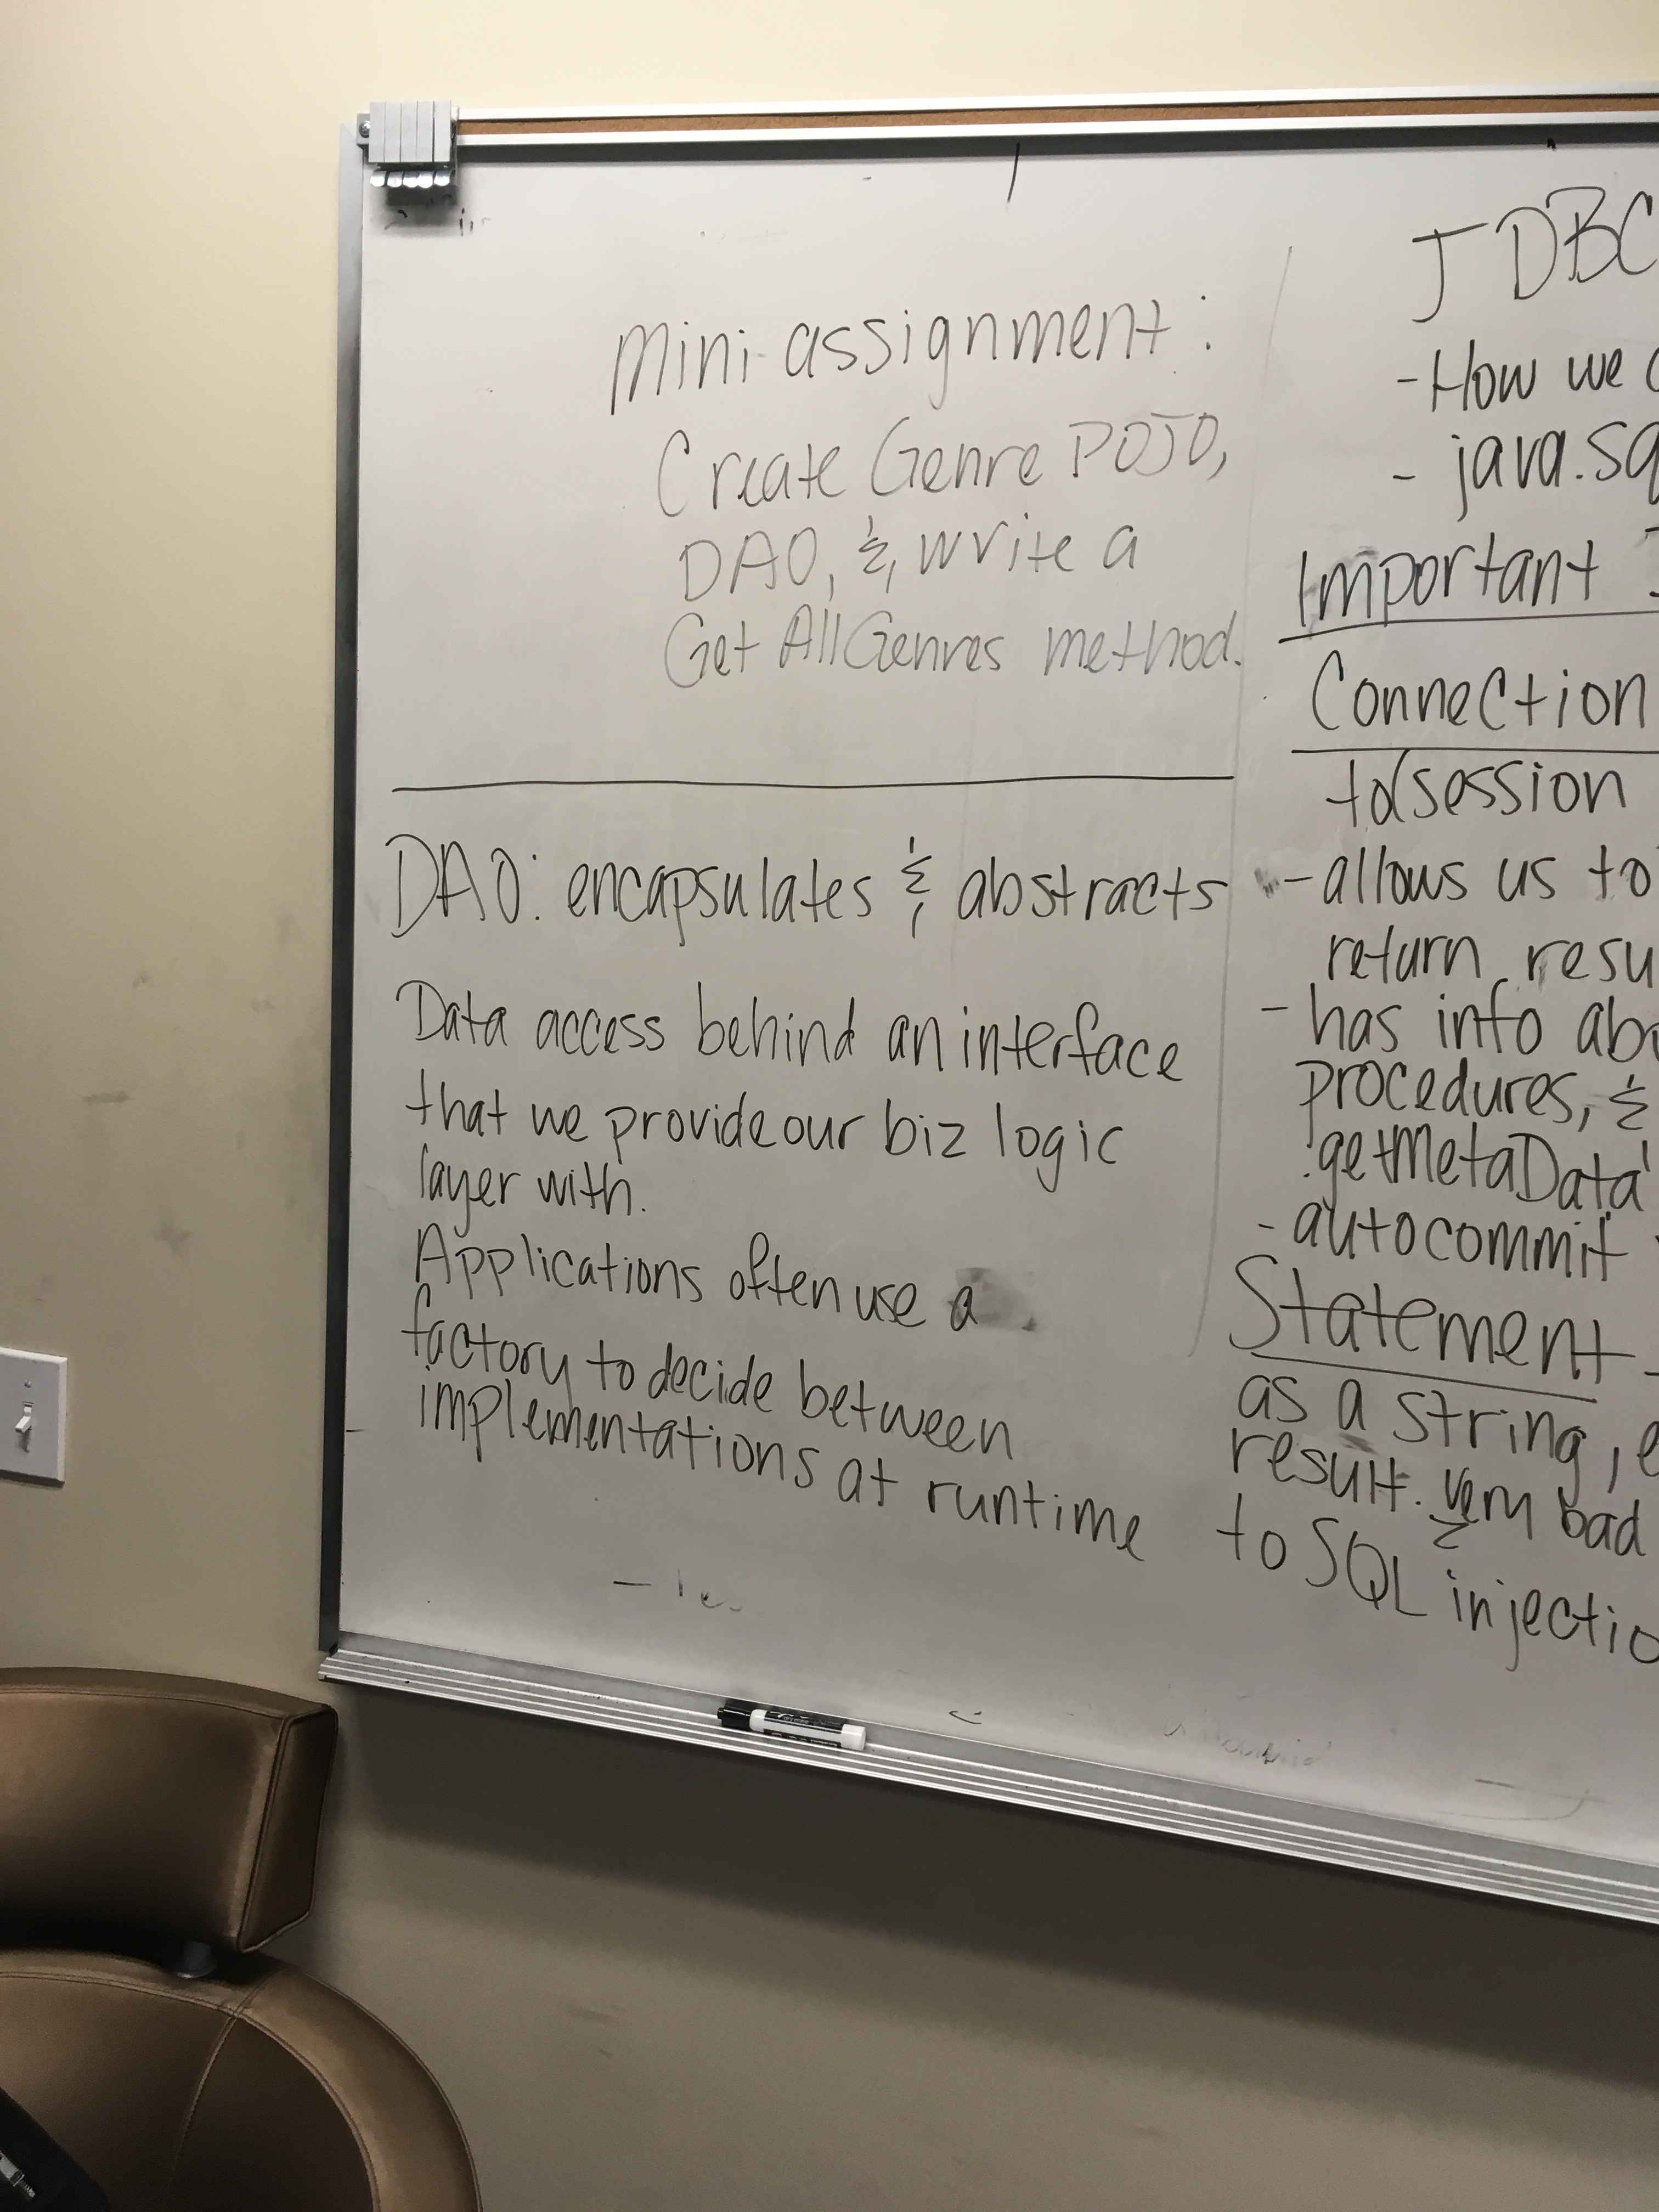 Mini-assignment:
Create Genre POJO,
DAO, & write a
Get AllGenres method.
DAO: encapsulates & abstracts
Data access behind an interface
that we provide our biz logic
layer with.
Applications often use a
factory to decide between
implementations at runtime
JDBC
- How we
- java.sq
Important
Connection
to(session
- allows us to
return resu
- has info abo
procedures, &
.getMetaData
- autocommit
Statement -
as a string, e
result. very bad
to SQL injectio